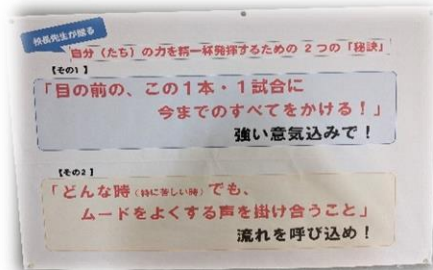 校長先生が贈る
自分(たち)の力を精一杯発揮するための 2つの「秘訣」
【その1】
「目の前の、この1本・1試合に
今までのすべてをかける!」
強い意気込みで!
【その2】
「どんな時(特に苦しい時)でも、
ムードをよくする声を掛け合うこと」
流れを呼び込め!